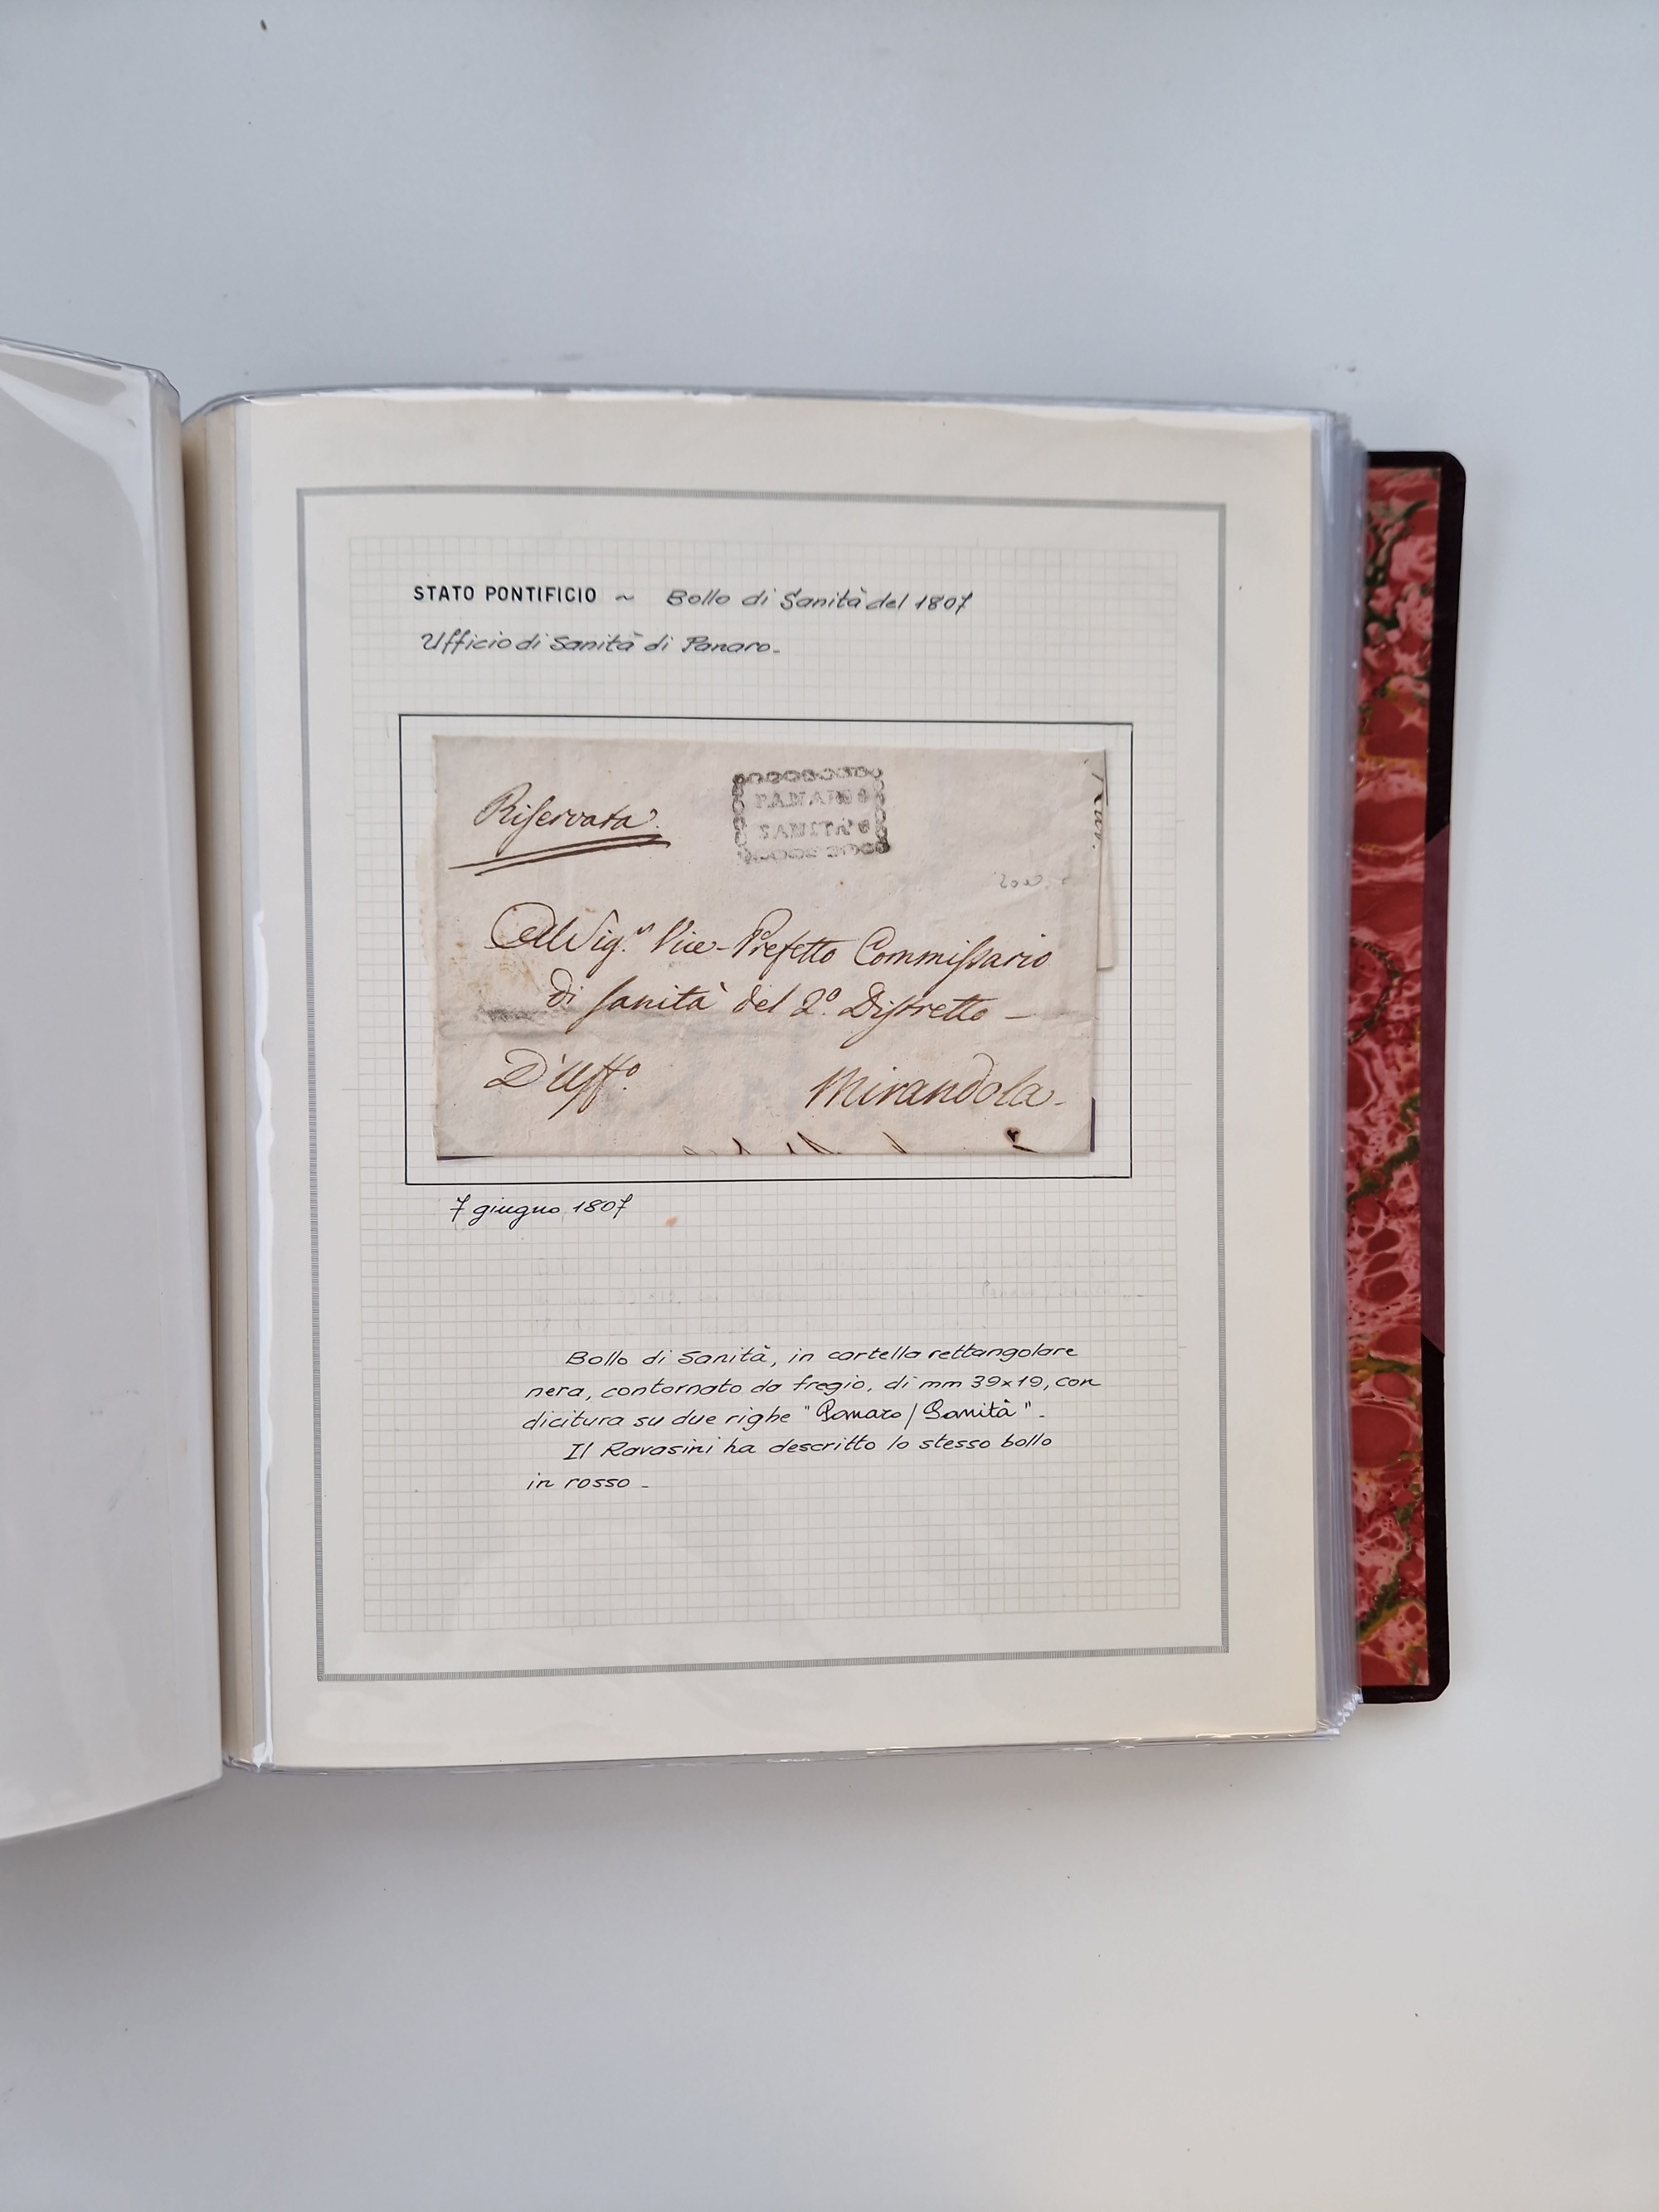 STATO PONTIFICIO ~ Bollo di Sanità del 1807
Ufficio di Sanità di Panaro.
Riservata
PANARO
SANITA'
Al Sig.r Vice-Prefetto Commissario
di Sanità del 2º. Distretto -
D'Uff.º
Mirandola -
7 giugno 1807
Bollo di Sanità, in cartella rettangolare
nera, contornato da fregio, di mm 39x19, con
dicitura su due righe "Panaro / Sanità".
Il Ravasini ha descritto lo stesso bollo
in rosso -